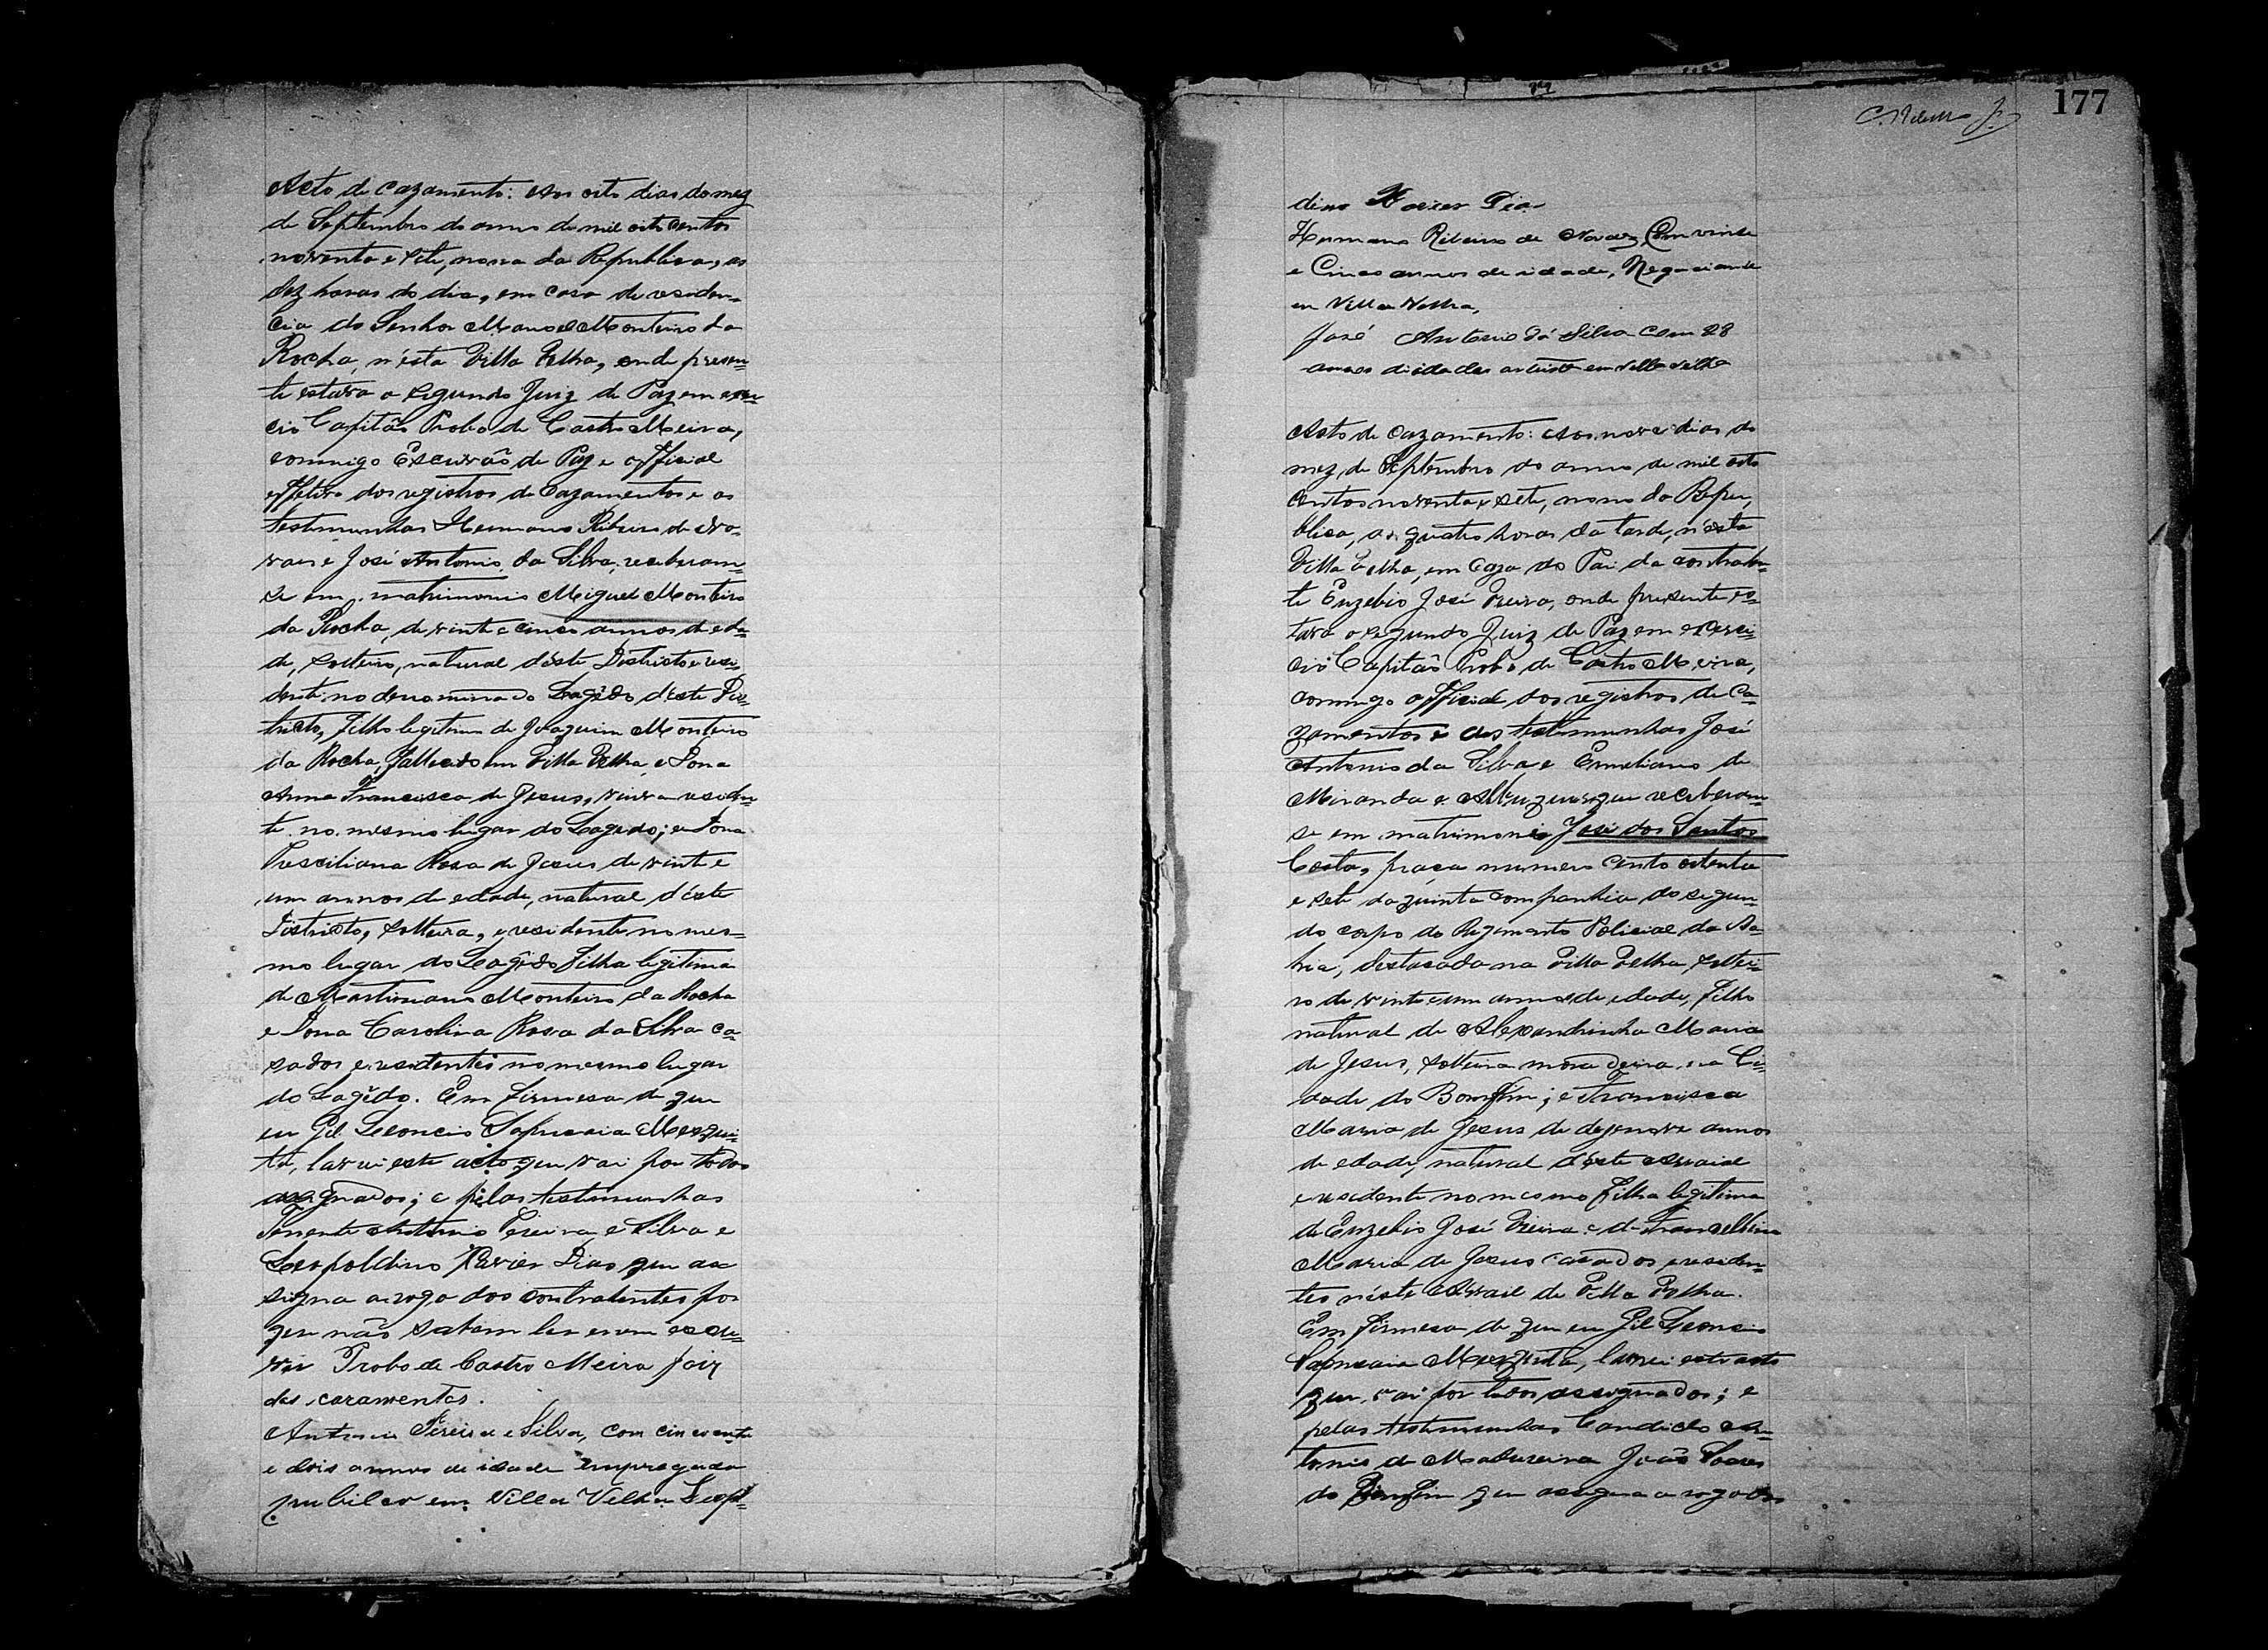 Acto de cazamento: Aos oito dias do mez
de Septembro do anno de mil oito centos
noventa e sete, nona da Republica, as
dez horas do dia, em casa de residen=
cia do Senhor Manoel Monteiro da
Rocha, n'ésta Villa Velha, onde presen=
te estava o segundo Juiz de Paz em exer=
cio Capitão Probo de Castro Meira,
commigo Escrivão de Paz e official
effetivo dos registros de Cazamentos e as
testimunhas Hermano Ribeiro de No-
vaes e José Antonio da Silva, receberam=
se em matrimonio Miguel Monteiro
da Rocha, de vinte e cinco annos de eda=
de, solteiro, natural déste Districto e resi=
dente no denominado Lagêdo d'éste Dis=
tricto, filho legitimo de Joaquim Monteiro
da Rocha, fallecido em Villa Velha e Dona
Anna Francisca de Jesus, viuva residen=
te no mesmo lugar do Lagedo; e Dona
Presciliana Rosa de Jesus, de vinte e
um annos de edade, natural d'éste
Districto, solteira, e residente no mes=
mo lugar do Lagêdo filha legitima
de Martiniano Monteiro da Rocha
e Dona Carolina Rosa da Silva ca=
sados e residentes no mesmo lugar
do Lagêdo. Em firmesa do que
eu Gil Leoncio Sapucaia Mesqui=
ta, lavrei este acto que vai por todos
assignados; e pelas testimunhas
Tenente Antonio Pereira e Silva e
Leopoldino Xavier Dias que as
signa a rogo dos contratentes por
que não sabem ler enem escre=
ver Probo de Castro Meira Joiz
dos cazamentos.
Antonio Pereira e Silva, com cincoenta
e dois annos de idade empregado
publico em Villa Velha Leopol=
177
dino Xavier Dias
Hermano Ribeiro de Novaes, Com vinte
e Cinco annos de idade, Negociante
em Villa Velha,
José Antonio da Silva com 28
annos di idades artista em villa vélha
Acto de Cazamento: Aos nove dias do
mez de Septembro do anno de mil oito
centos noventa e sete, nono da Repu=
blica, as quatro horas da tarde, n'ésta
Villa Velha, em Caza do Pai da contrahen=
te Euzebio José Vieira, onde presente es=
tava o segundo Juiz de Paz em exerci=
cio Capitão Probo de Castro Meira,
comigo official dos registros de Ca=
zamentos e as testimunhas José
Antonio da Silva e Emeliano de
Miranda e Albuquerque receberam=
se em matrimonio José dos Santos
Costa, praça numero cento oitenta
e sete da quinta companhia do segun=
do corpo do Regimento Policial da Ba=
hia, destacado na Villa Velha, soltei=
ro de vinte e um annos de edade, Filho
natural de Alexandrinha Maria
de Jesus, solteira moradeira na Ci=
dade do Bomfim; e Francisca
Maria de Jesus de dezenove annos
de edade, natural d'éste Arraial
e residente no mesmo filha legitima
de Euzebio José Vieira e de Francellina
Maria de Jesus casados e residen=
tes n'éste Arraial de Villa Velha.
Em firmesa do que eu Gil Leoncio
Sapucaia Mesquita, lavrei este acto
que vai por todos assignados; e
pelas testimunhas Candido An=
tonio de Madureira João Soares
do Bomfim que assigna a rogo dos